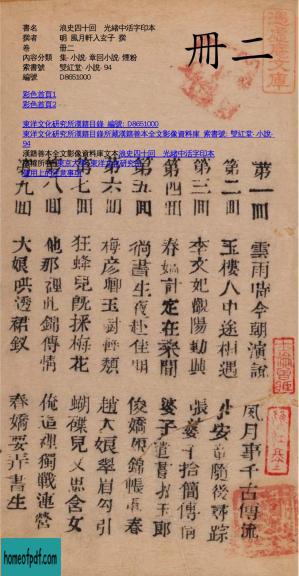 書名 浪史四十回 光緒中活字印本
撰者 明 風月軒入玄子 撰
卷 冊二
內容分類 集-小說-章回小說-煙粉
索書號 雙紅堂-小說-94
編號 D8651000
彩色首頁1
彩色首頁2
東洋文化研究所漢籍目錄 編號: D8651000
東洋文化研究所漢籍目錄所藏漢籍善本全文影像資料庫 索書號: 雙紅堂-小說-
94
漢籍善本全文影像資料庫文本浪史四十回 光緒中活字印本
冊二
第一回 雲雨時今朝演說 風月事千古傳流
第二回 王樓人中途相遇 小安童隨後尋踪
第三回 李文妃觀陽動興 張婆子拾簡傳情
第四回 春嬌計定在桑間 婆子遣書招玉郎
第五回 俏書生夜赴佳期 俊嬌娘錦帳春
第六回 梅彥卿玉對 趙大娘舉眉勾引
第七回 狂蜂兒旣採梅花 蝴蝶兒又思含女
第八回 他那裡此錦傳情 俺這裡獨戰連營
第九回 大娘哄透裙釵 春嬌要弄書生
homeofpdf.com